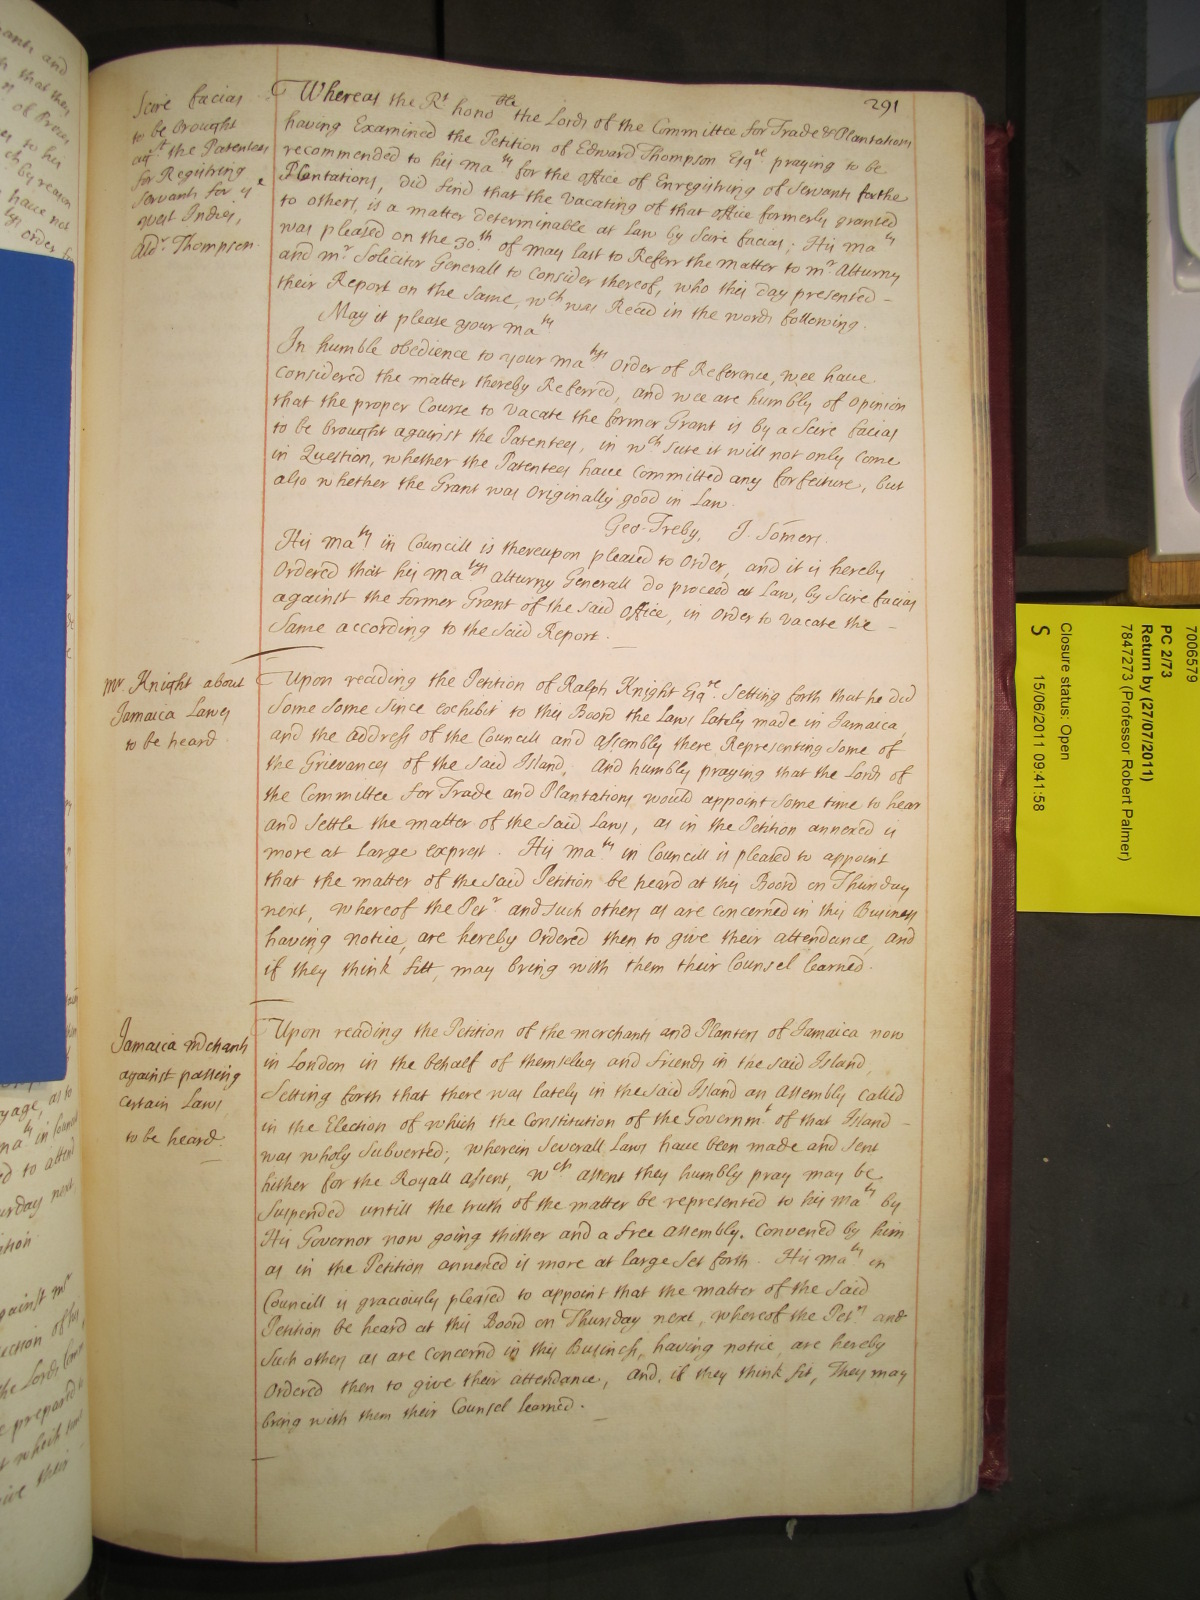 291
Scire facias
to be brought
agst the Patentees
for Registring
Servants for ye
West Indies,
Aldr. Thompson.
Whereas the Rt honoble the Lords of the Committee for Trade & Plantations
having Examined the Petition of Edward Thompson Esqre praying to be
recommended to his Maty for the office of Enregistring of Servants for the
Plantations, did find that the vacating of that office formerly granted
to others, is a matter determinable at Law by Scire facias; His Maty
was pleased on the 30th of May last to Referr the matter to Mr Atturny
and Mr Solicitor Generall to Consider thereof, who this day presented -
their Report on the Same, wch was Read in the words following.
May it please your Maty
In humble obedience to your Matys Order of Reference, wee have
Considered the matter thereby Referred, and wee are humbly of Opinion
that the proper Course to vacate the former Grant is by a Scire facias
to be brought against the Patentees, in wch Suite it will not only come
in Question, whether the Patentees have Committed any forfeiture, but
also whether the Grant was Originally good in Law.
Geo: Treby, J. Somers.
His Maty in Councill is thereupon pleased to Order, and it is hereby
Ordered that his Matys Atturny Generall do proceed at Law, by Scire facias
against the former Grant of the said office, in Order to vacate the -
Same according to the Said Report.
Mr. Knight about
Jamaica Laws
to be heard
Upon reading the Petition of Ralph Knight Esqre. Setting forth that he did
Some Some Since exhibit to this Board the Laws lately made in Jamaica,
and the Address of the Councill and Assembly there Representing Some of
the Grievances of the Said Island, And humbly praying that the Lords of
the Committee for Trade and Plantations would appoint Some time to hear
and Settle the matter of the Said Laws, as in the Petition annexed is
more at Large exprest. His Maty in Councill is pleased to appoint
that the matter of the Said Petition be heard at this Board on Thursday
next, whereof the Petr. and such others as are Concerned in this Business
having notice, are hereby Ordered then to give their attendance, and
if they think fitt, may bring with them their Counsel learned.
Jamaica Mchants
against passing
certain Laws
to be heard.
Upon reading the Petition of the Merchants and Planters of Jamaica now
in London in the behalf of themselves and friends in the said Island,
Setting forth that there was lately in the Said Island an Assembly called
in the Election of which the Constitution of the Governmt of that Island -
was wholy Subverted; wherein Severall Laws have been made and Sent
hither for the Royall Assent, wch assent they humbly pray may be
Suspended untill the truth of the matter be represented to his Maty by
His Governor now going thither and a free Assembly. Convened by him
as in the Petition annexed is more at large Set forth. His Maty in
Councill is graciously pleased to appoint that the matter of the Said
Petition be heard at this Board on Thursday next, whereof the Petrs and
Such others as are Concernd in this Business, having notice, are hereby
Ordered then to give their attendance, and, if they think fit, They may
bring with them their Counsel learned.
7006579
PC 2/73
Return by (27/07/2011)
7847273 (Professor Robert Palmer)
Closure status: Open
S 15/06/2011 09:41:58